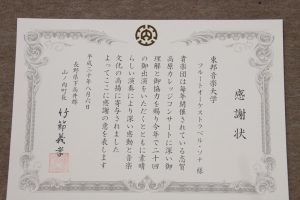 感謝状
東邦音楽大学
フルートオーケストラベル・ソナ 様
貴楽団は毎年開催されている志賀
高原カレッジコンサートに深い御
理解と御協力を賜り今年で二十回
の御出演をいただくとともに素晴
らしい演奏により深い感動と音楽
文化の高揚に寄与されました
よってここに感謝の意を表します
平成二十年八月六日
長野県下高井郡
山ノ内町長 竹節義孝